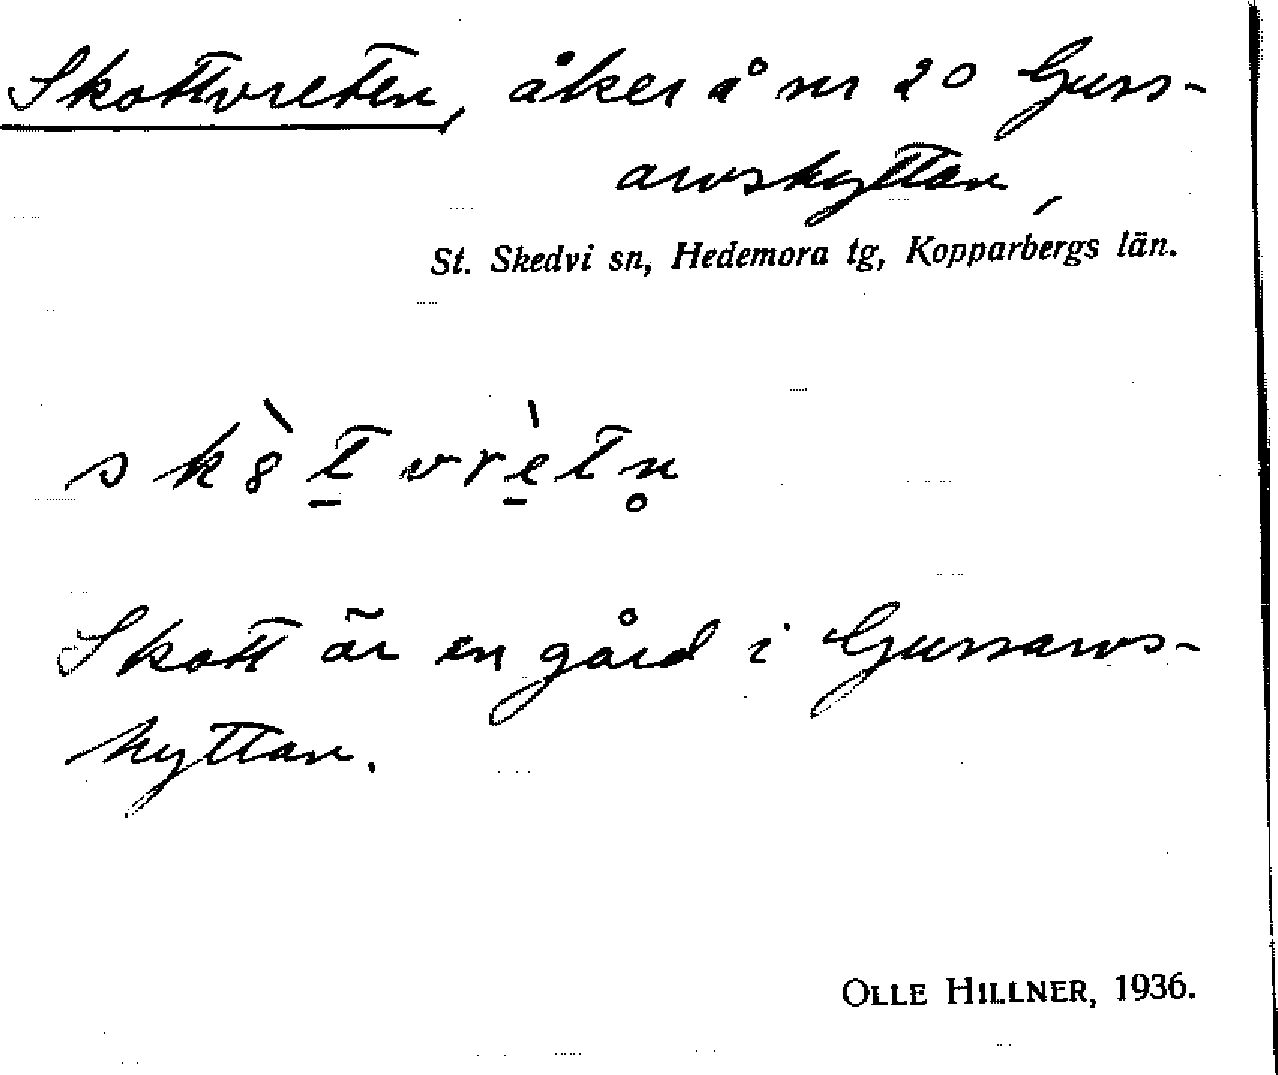 Skottvreten, åker å nr 20 Guss-
arvshyttan,
St. Skedvi sn, Hedemora tg, Kopparbergs län.
sk8̀t̠vrè̠tn̥
Skott är en gård i Gussarvs-
hyttan.
OLLE HILLNER, 1936.